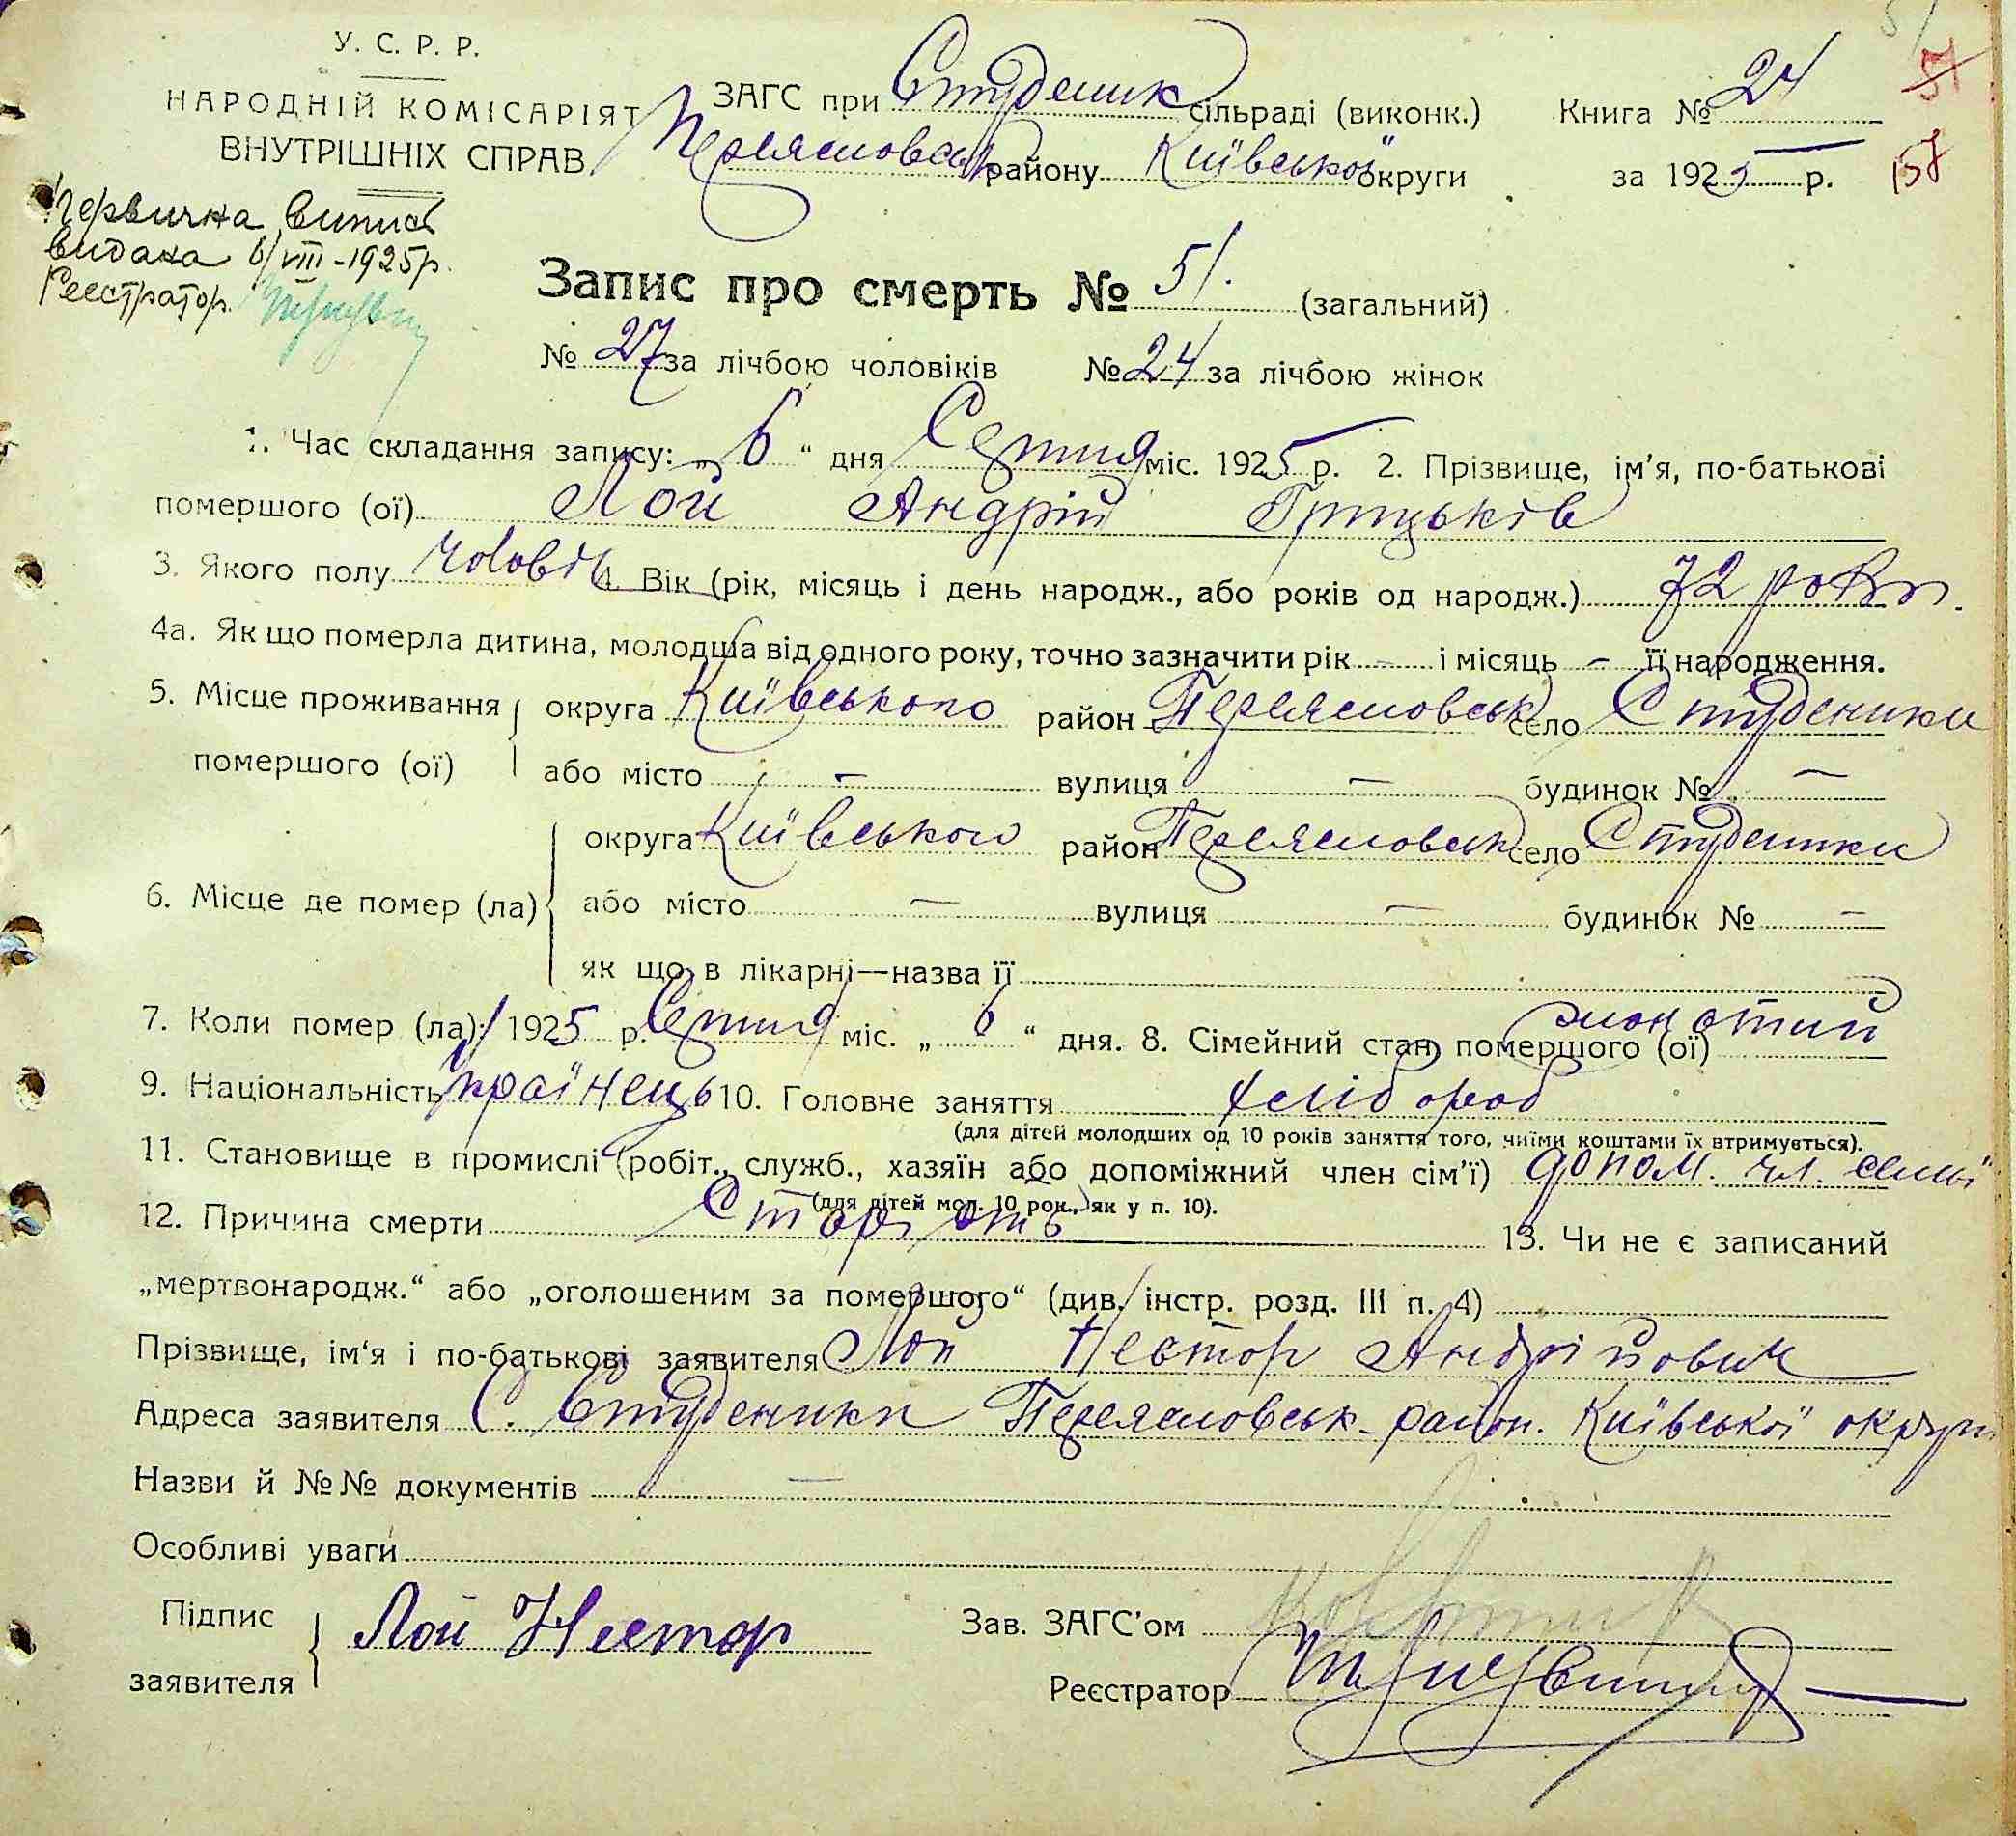 У. С. Р. Р.
НАРОДНІЙ КОМІСАРІЯТ
ВНУТРІШНІХ СПРАВ
ЗАГС при Студеник сільраді (виконк.) Книга № 24
Переясловськ району Київської округи за 1925 р.
51
157
Первична випись
видана 6/VIII-1925р.
Реєстратор.
Запис про смерть № 51. (загальний)
№ 27 за лічбою чоловіків № 24 за лічбою жінок
1. Час складання запису: „ 6 “ дня Серпня міс. 1925 р. 2. Прізвище, ім’я, по-батькові
помершого (ої) Лой Андрій Грицьків
3. Якого полу чоловік 4. Вік (рік, місяць і день народж., або років од народж.) 72 роки.
4а. Як що померла дитина, молодша від одного року, точно зазначити рік – і місяць – її народження.
5. Місце проживання помершого (ої) округа Київського район Переясловськ село Студеники
або місто – вулиця – будинок № –
6. Місце де помер (ла) округа Київського район Переясловськ село Студеники
або місто – вулиця – будинок № –
як що в лікарні—назва її
7. Коли помер (ла): 1925 р. Серпня міс. „ 6 “ дня. 8. Сімейний стан помершого (ої) жонатий
9. Національність Українець 10. Головне заняття хлібороб
(для дітей молодших од 10 років заняття того, чиїми коштами їх втримується).
11. Становище в промислі (робіт., служб., хазяїн або допоміжний член сім’ї) допом. чл. семьї
(для дітей мол. 10 рок., як у п. 10).
12. Причина смерти Старість 13. Чи не є записаний
„мертвонародж.“ або „оголошеним за помершого“ (див. інстр. розд. III п. 4)
Прізвище, ім’я і по-батькові заявителя Лой Нестор Андрійович
Адреса заявителя С. Студеники Переясловськ-район. Київської округи
Назви й №№ документів –
Особливі уваги
Підпис заявителя Лой Нестор
Зав. ЗАГС’ом
Реєстратор